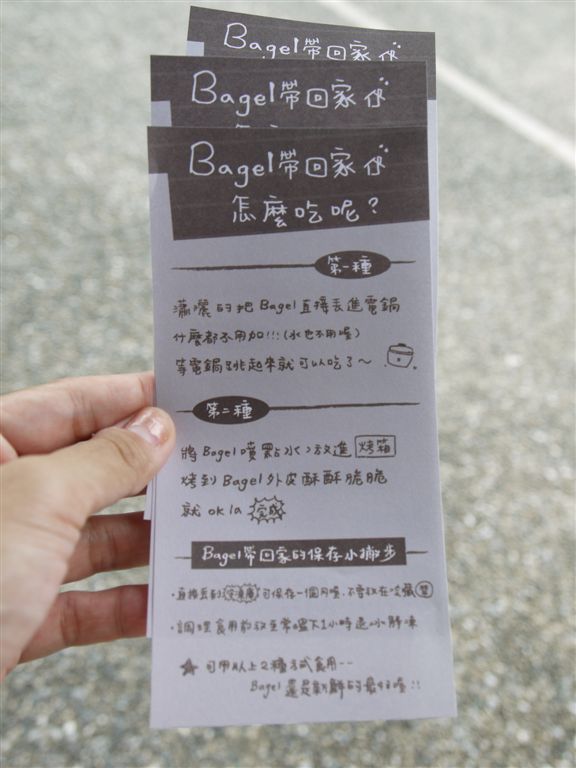 Bagel帶回家
Bagel帶回家
Bagel帶回家
怎麼吃呢?
第一種
瀟灑的把Bagel直接丟進電鍋
什麼都不用加!!!(水也不用喔)
等電鍋跳起來就可以吃了～
第二種
將Bagel噴點水,放進 烤箱
烤到Bagel外皮酥酥脆脆
就ok la 完成
Bagel帶回家的保存小撇步
·直接丟到冷凍庫可保存一個月喔,不要放在冷藏
·調理食用前放至常溫下1小時退冰解凍
★可用以上2種方式食用--
Bagel還是新鮮的最好喔!!